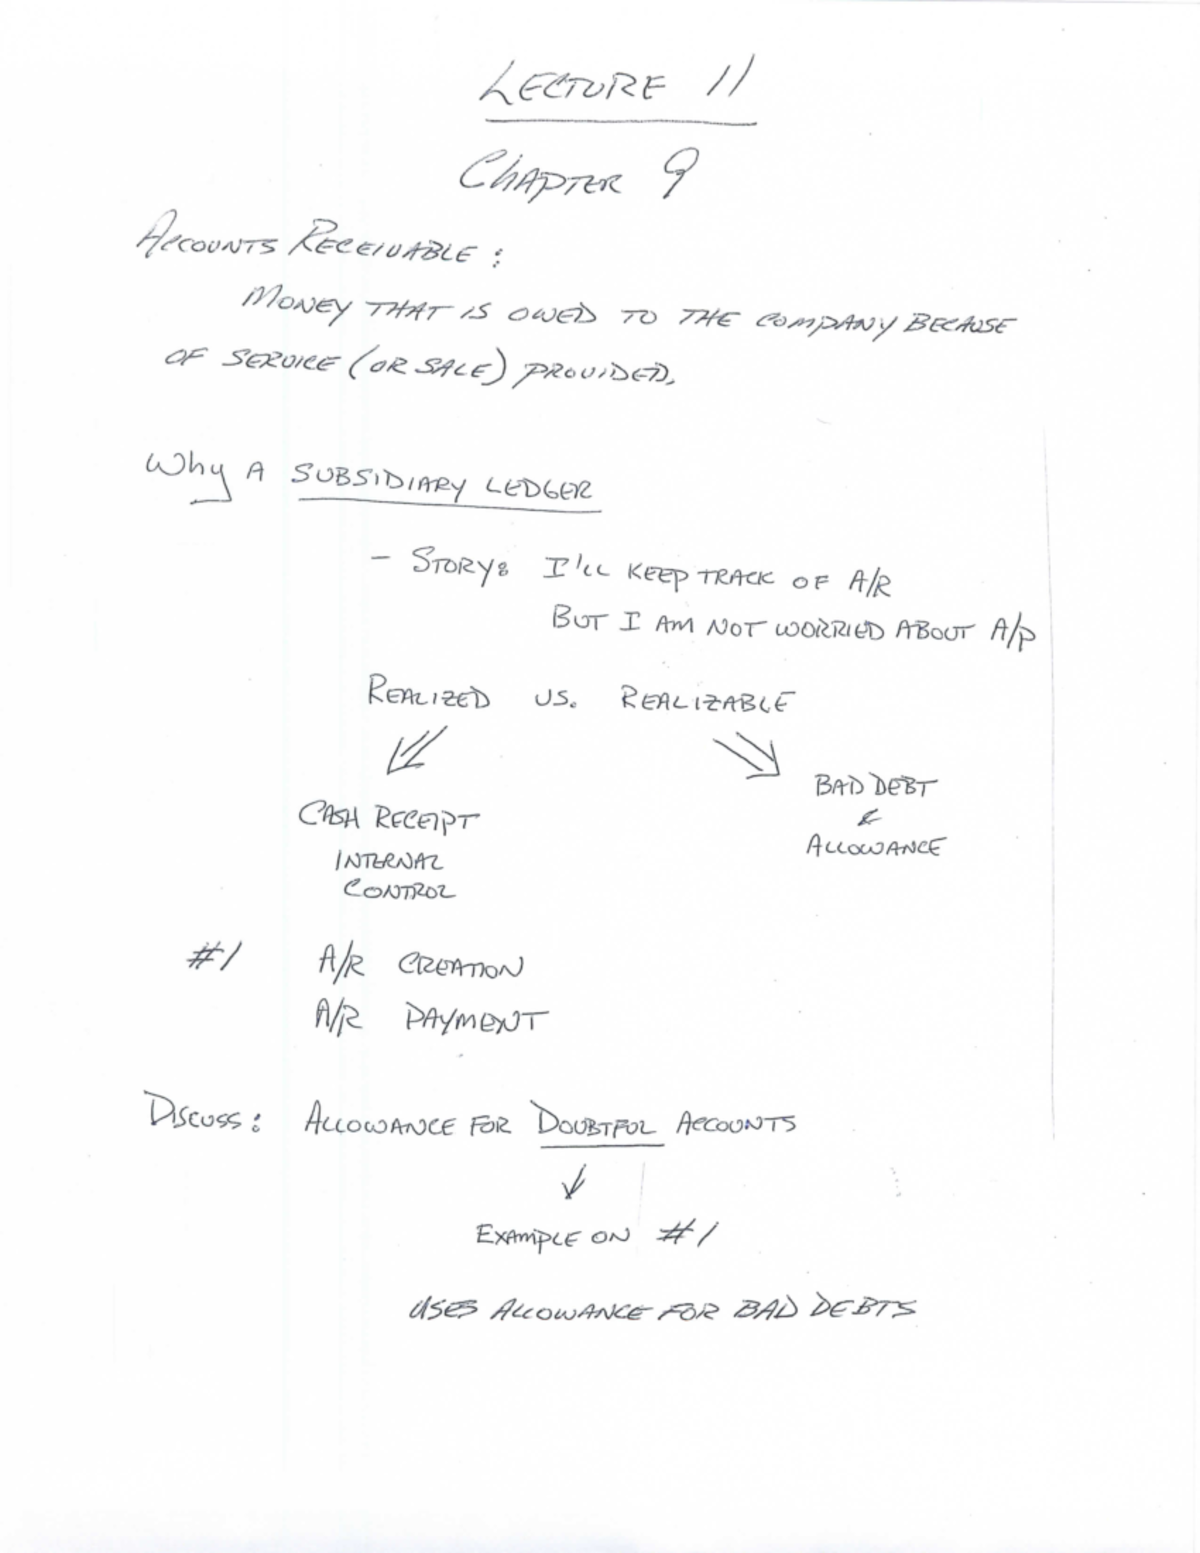 LECTURE 11
CHAPTER 9
ACCOUNTS RECEIVABLE:
MONEY THAT IS OWED TO THE COMPANY BECAUSE
OF SERVICE (OR SALE) PROVIDED.
Why A SUBSIDIARY LEDGER
- STORY: I'LL KEEP TRACK OF A/R
BUT I AM NOT WORRIED ABOUT A/P
REALIZED VS. REALIZABLE
CASH RECEIPT
INTERNAL
CONTROL
BAD DEBT
&
ALLOWANCE
#1 A/R CREATION
A/R PAYMENT
DISCUSS: ALLOWANCE FOR DOUBTFUL ACCOUNTS
EXAMPLE ON #1
USES ALLOWANCE FOR BAD DEBTS